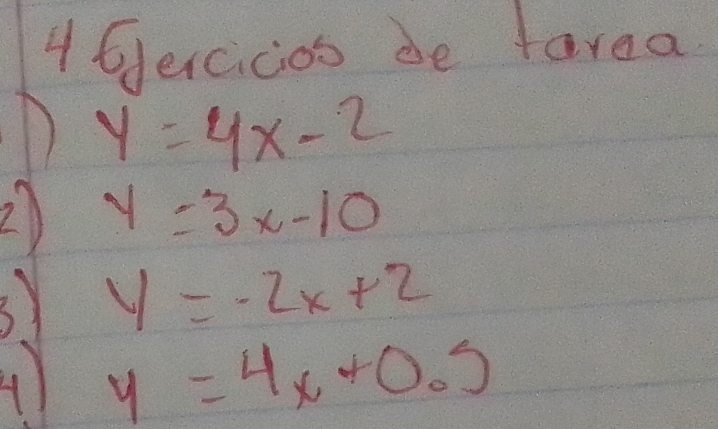 4 Ejercicios de tarea
1) y = 4x - 2
2) y = 3x - 10
3) y = -2x + 2
4) y = 4x + 0.5